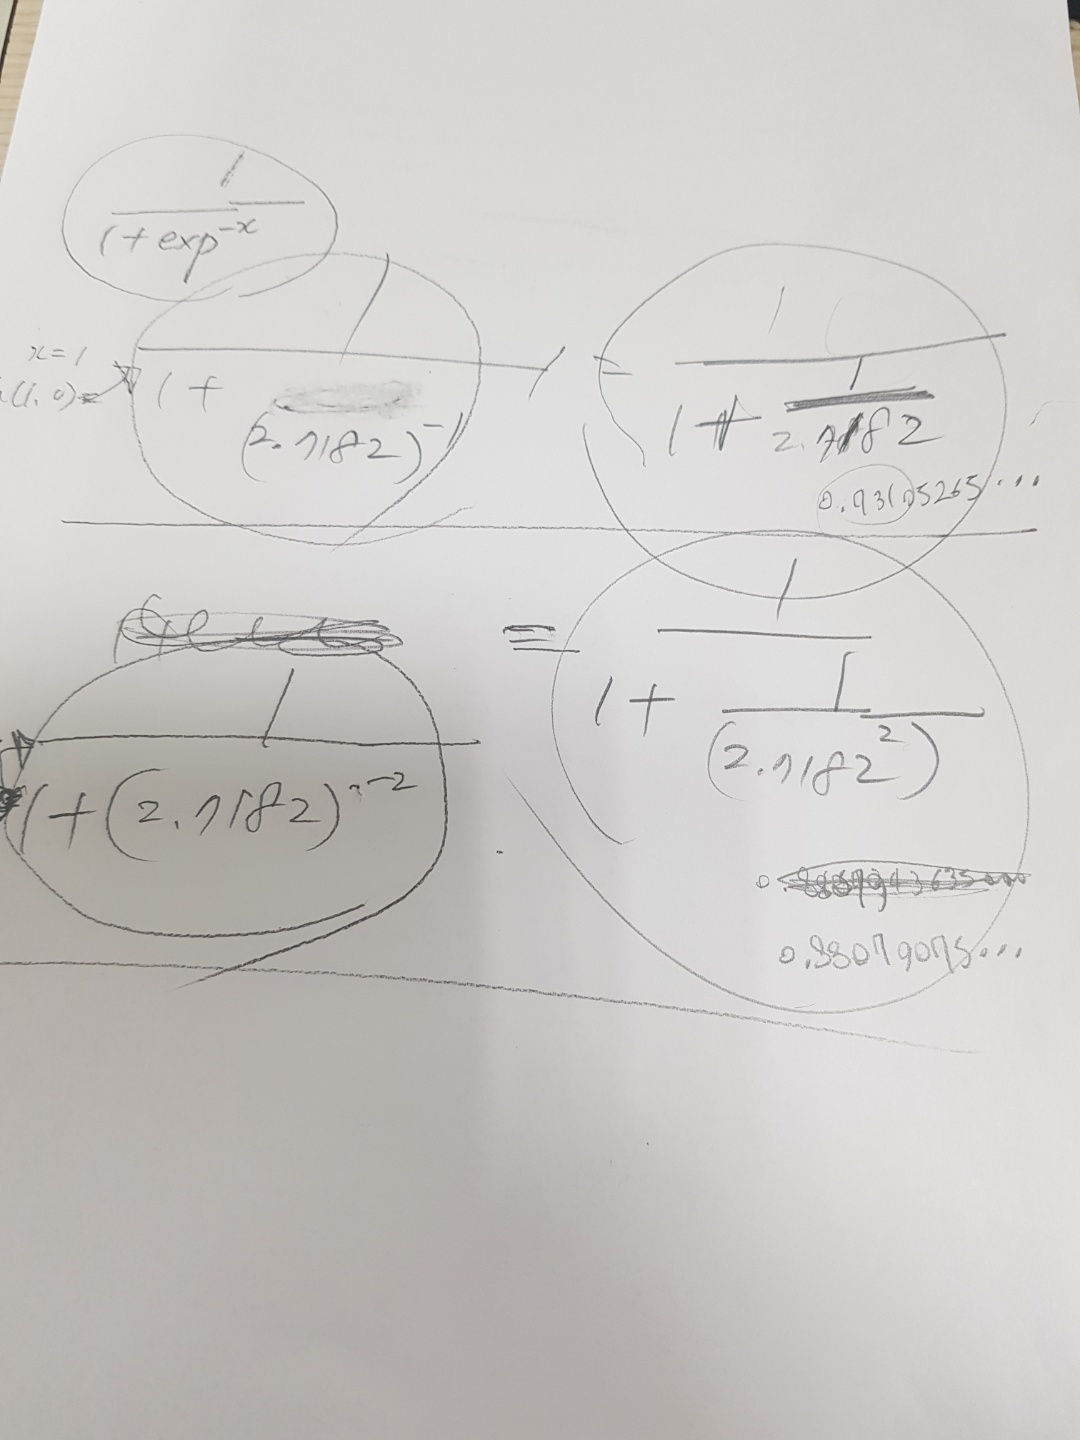 1
1+exp⁻ˣ
x=1
1
1 +
(2.7182)⁻¹
=
1
1 + 1
2.7182
0.73105265...
1
1+(2.7182)⁻²
=
1
1 + 1
(2.7182²)
0.88079075...